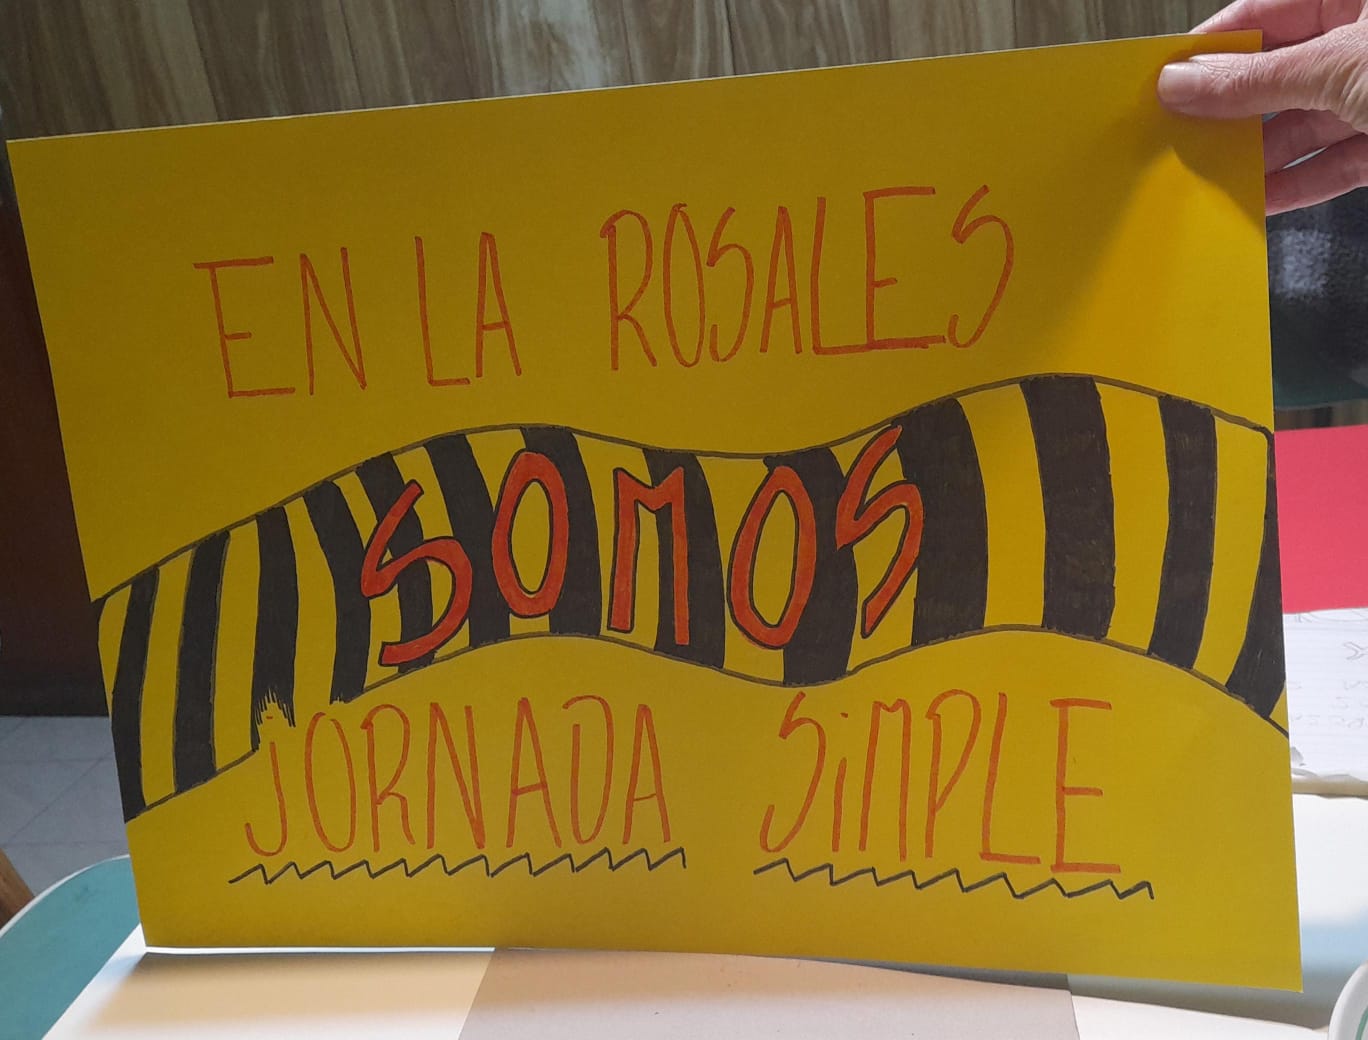 EN LA ROSALES
SOMOS
JORNADA SiMPLE